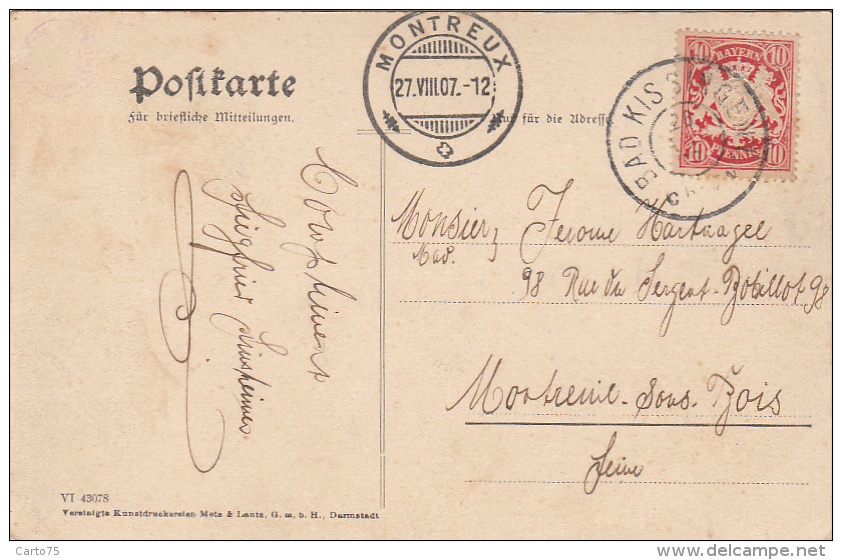 Postkarte
für briefliche Mitteilungen.
MONTREUX
27.VIII.07.-12
Nur für die Adresse
BAYERN
10 10
10 PFENNIG 10
BAD KISSINGEN
Monsier
Mad.
Jerome Hartnagel
98 Rue du Sergent-Bobillot 98
Montreuil-Sous-Bois
Seine
Compliments
Siegfried
VI 43078
Vereinigte Kunstdruckereien Metz & Lautz, G. m. b. H., Darmstadt
Carto75
www.delcampe.net